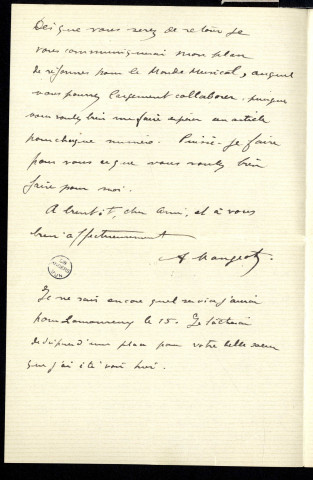 Dès que vous serez de retour je
vous communiquerai mon plan
de réformes pour le Monde Musical, auquel
vous pourrez largement collaborer puisque
vous voulez bien me faire espérer un article
pour chaque numéro. Puissé-je faire
pour vous ce que vous voulez bien
faire pour moi.
A bientôt, cher ami, et à vous
bien affectueusement
A Mangeot
Je ne sais encore quel service j'aurai
pour Lamoureux le 15. Je tâcherai
de d'une place pour votre belle soeur
que j'ai été voir hier.